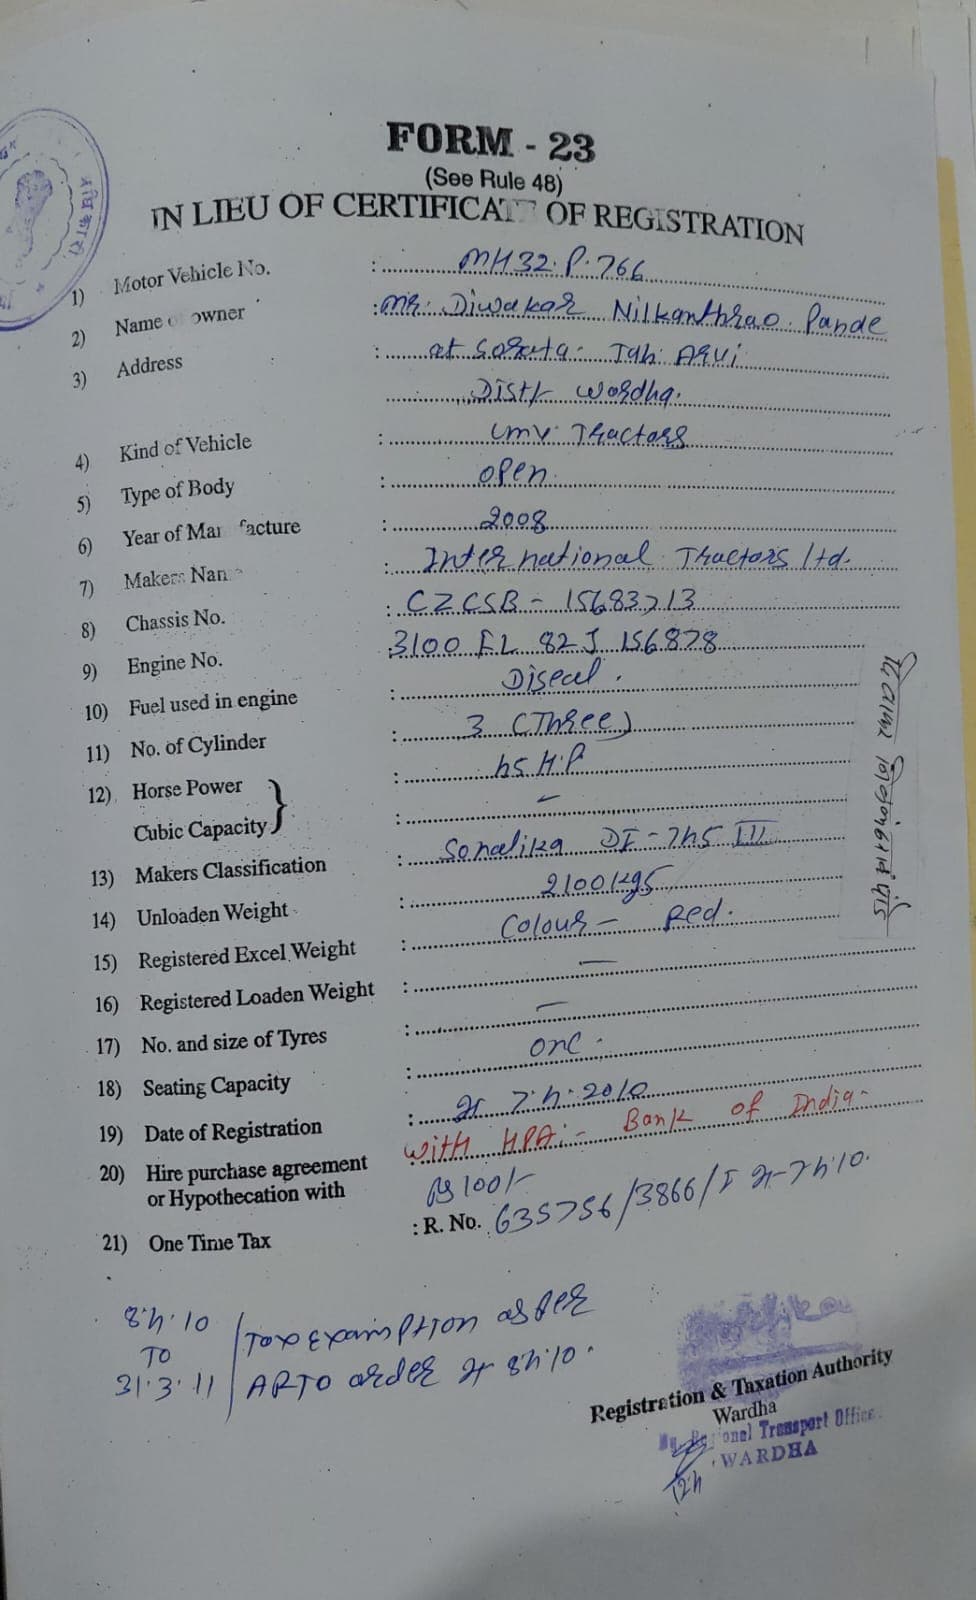 FORM - 23
(See Rule 48)
IN LIEU OF CERTIFICATE OF REGISTRATION
1) Motor Vehicle No. : MH32.P.766
2) Name of owner : Mr. Diwakar Nilkanthrao. Pande
3) Address : at Sorta. Tah: Arvi
Dist/- Wardha.
4) Kind of Vehicle : LMV. Tractors
5) Type of Body : open
6) Year of Manufacture : 2008
7) Makers Name : International Tractors ltd.
8) Chassis No. : CZCSB - 15683713
9) Engine No. : 3100 FL 82J 156878
10) Fuel used in engine : Diseal.
11) No. of Cylinder : 3 (Three)
12) Horse Power : 45 H.P
Cubic Capacity : -
13) Makers Classification : Sonalika DI - 745 III
14) Unloaden Weight : 2100 kgs
15) Registered Excel Weight : Colour - Red.
16) Registered Loaden Weight : -
17) No. and size of Tyres : -
18) Seating Capacity : one.
19) Date of Registration : 7.4.2010
20) Hire purchase agreement with HPA:- Bank of India-
or Hypothecation with Rs 100/-
21) One Time Tax : R. No. 635756/3866/I 7.4.10.
8.4.10 Tax Examption as per
TO
31.3.11 ARTO order 8.4.10.
Registration & Taxation Authority
Wardha
Dy. Regional Transport Office
WARDHA